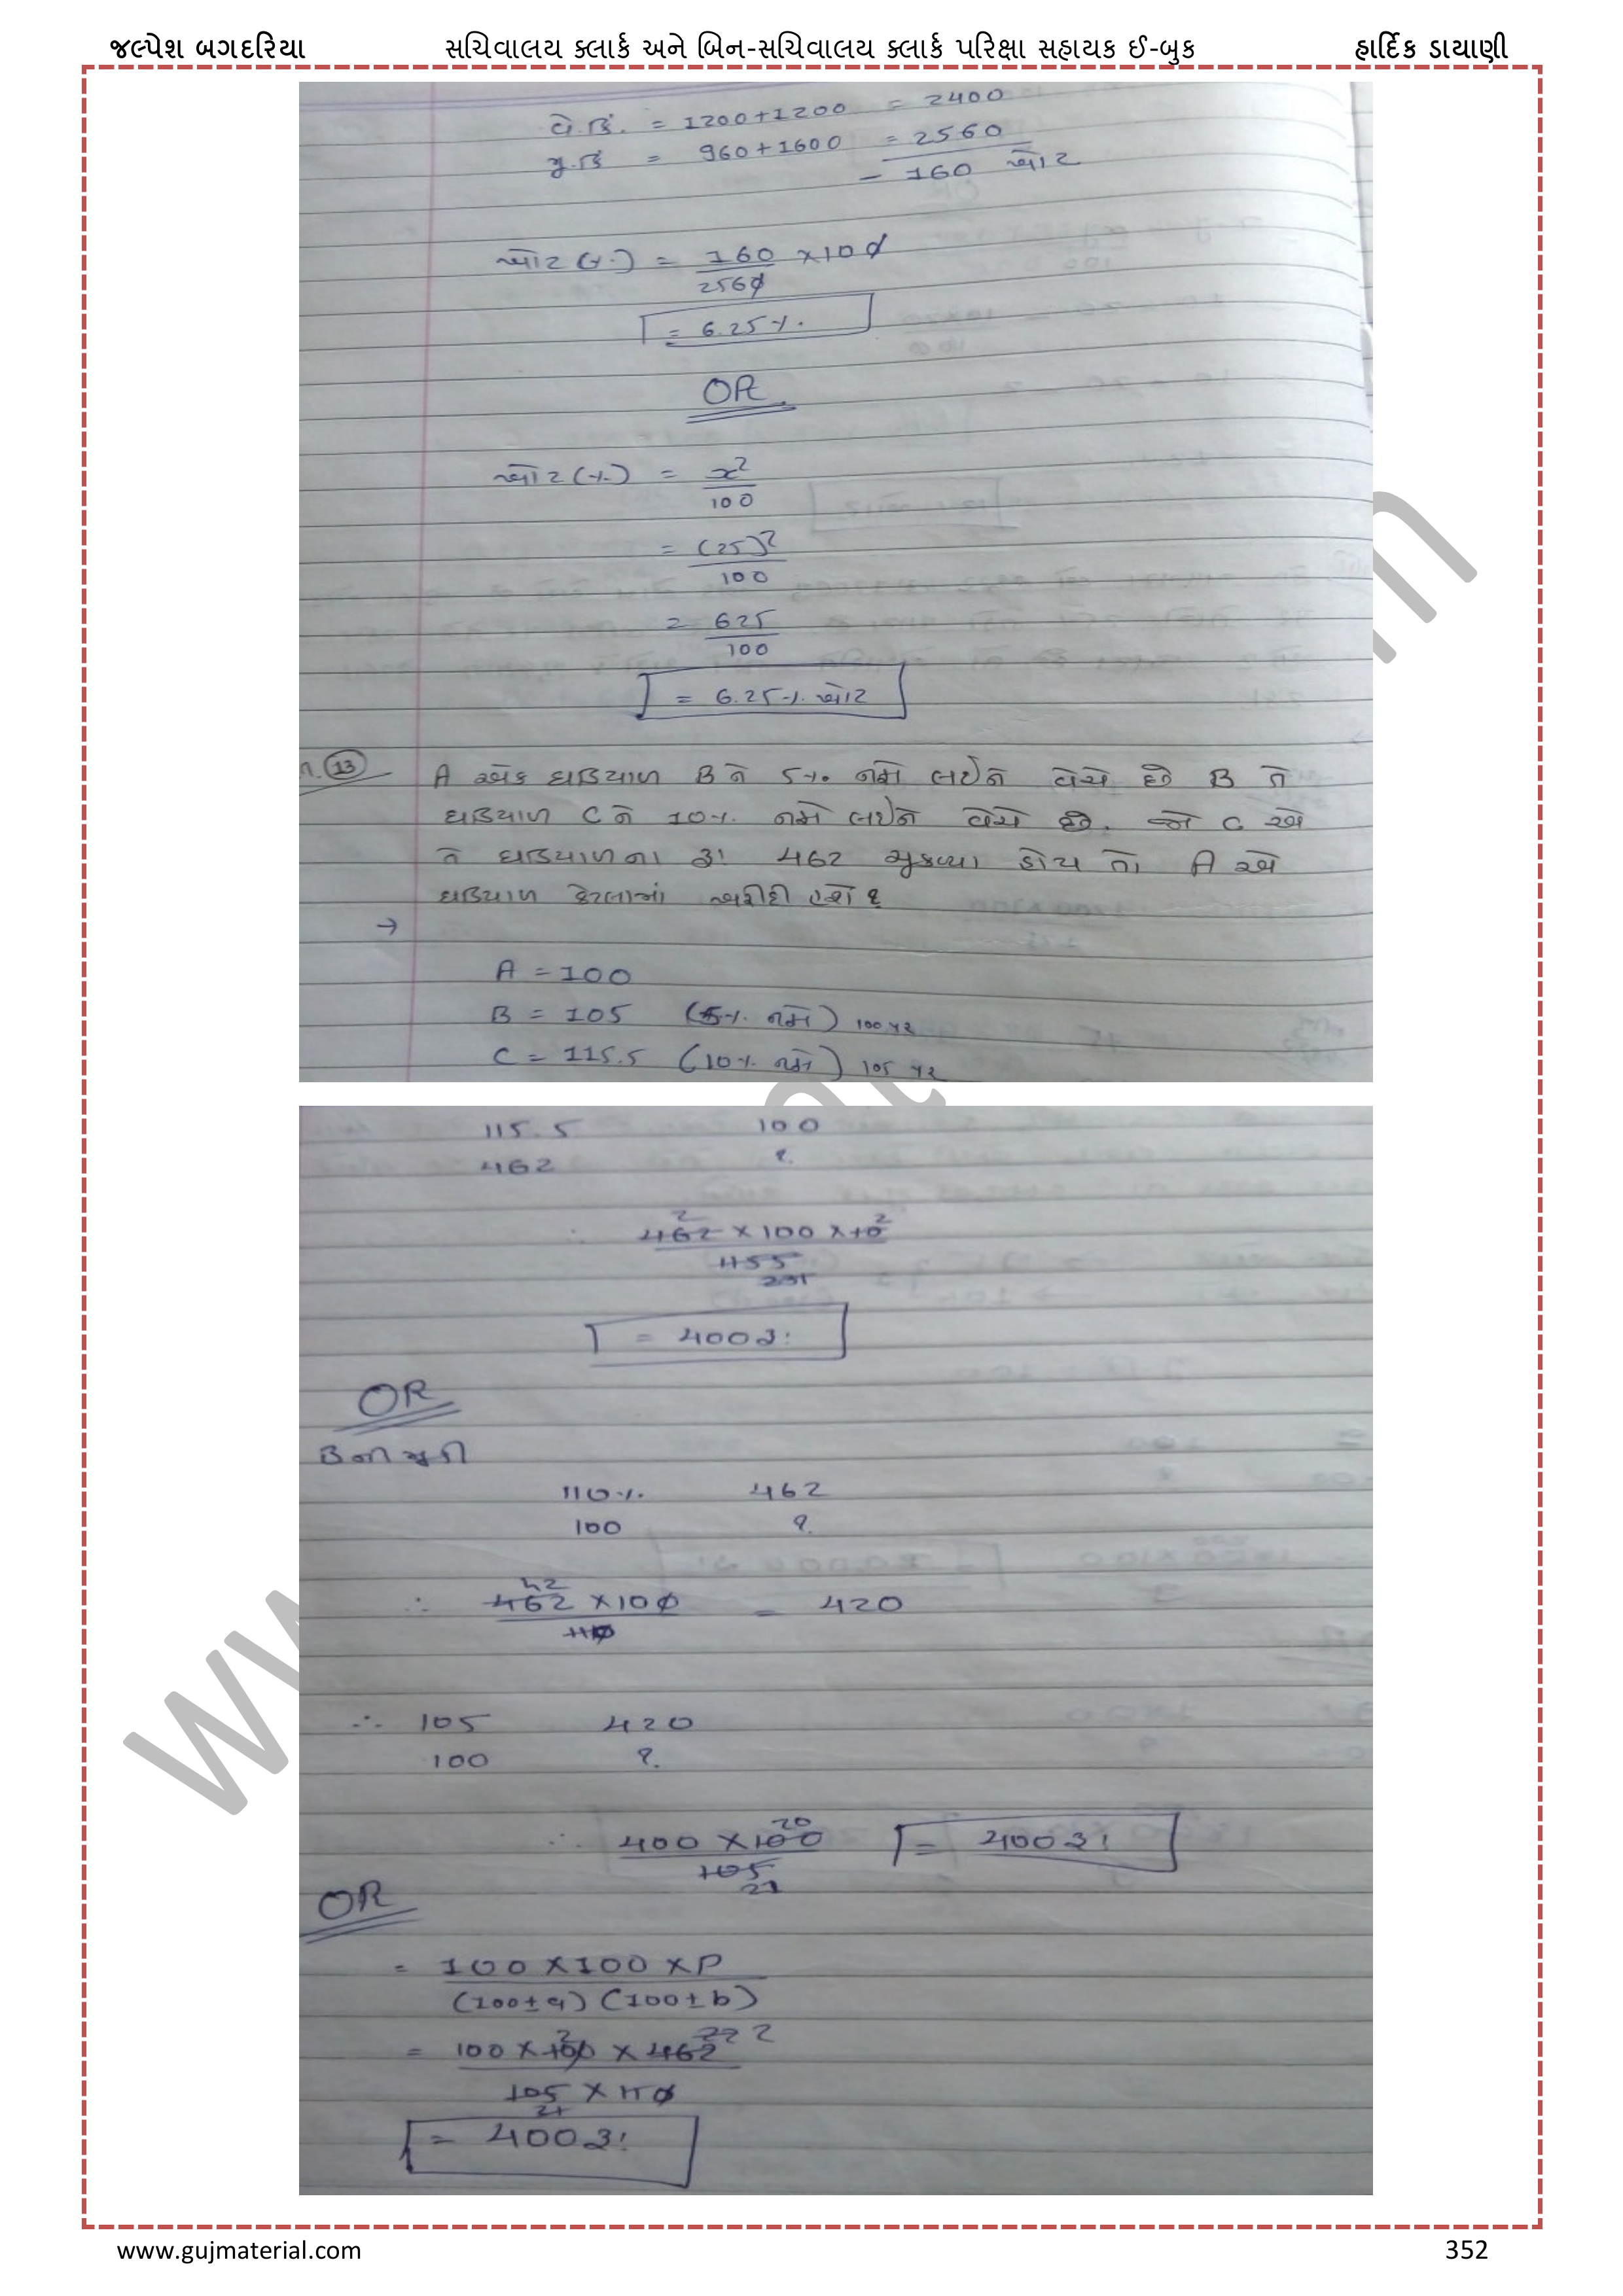 જલ્પેશ બગદરિયા સચિવાલય ક્લાર્ક અને બિન-સચિવાલય ક્લાર્ક પરિક્ષા સહાયક ઈ-બુક હાર્દિક ડાયાણી
વે.કિં. = 1200+1200 = 2400
મુ.કિં = 960+1600 = 2560
- 160 ખોટ
ખોટ (%) = 160/2560 ×100
= 6.25%
OR
ખોટ (%) = x²/100
= (25)²/100
= 625/100
= 6.25% ખોટ
(13) A એક ઘડિયાળ B ને 5% નફો લઈને વેચે છે B તે
ઘડિયાળ C ને 10% નફો લઈને વેચે છે. જો C એ
તે ઘડિયાળના રૂ! 462 ચુકવ્યા હોય તો A એ
ઘડિયાળ કેટલામાં ખરીદી હશે ?
→
A = 100
B = 105 (5% નફો) 100 પર
C = 115.5 (10% નફો) 105 પર
115.5 100
462 ?
∴ 462 × 100 × 10 / 1155
2 2 231
= 400 રૂ!
OR
B ની મુકી
110% 462
100 ?
∴ 462 × 100 / 110 = 420
42
∴ 105 420
100 ?
∴ 400 × 100 / 105 = 400 રૂ!
20 21
OR
= 100 × 100 × P / (100 ± a) (100 ± b)
= 100 × 100 × 462 / 105 × 110
2 22 2 21
= 400 રૂ!
www.gujmaterial.com 352